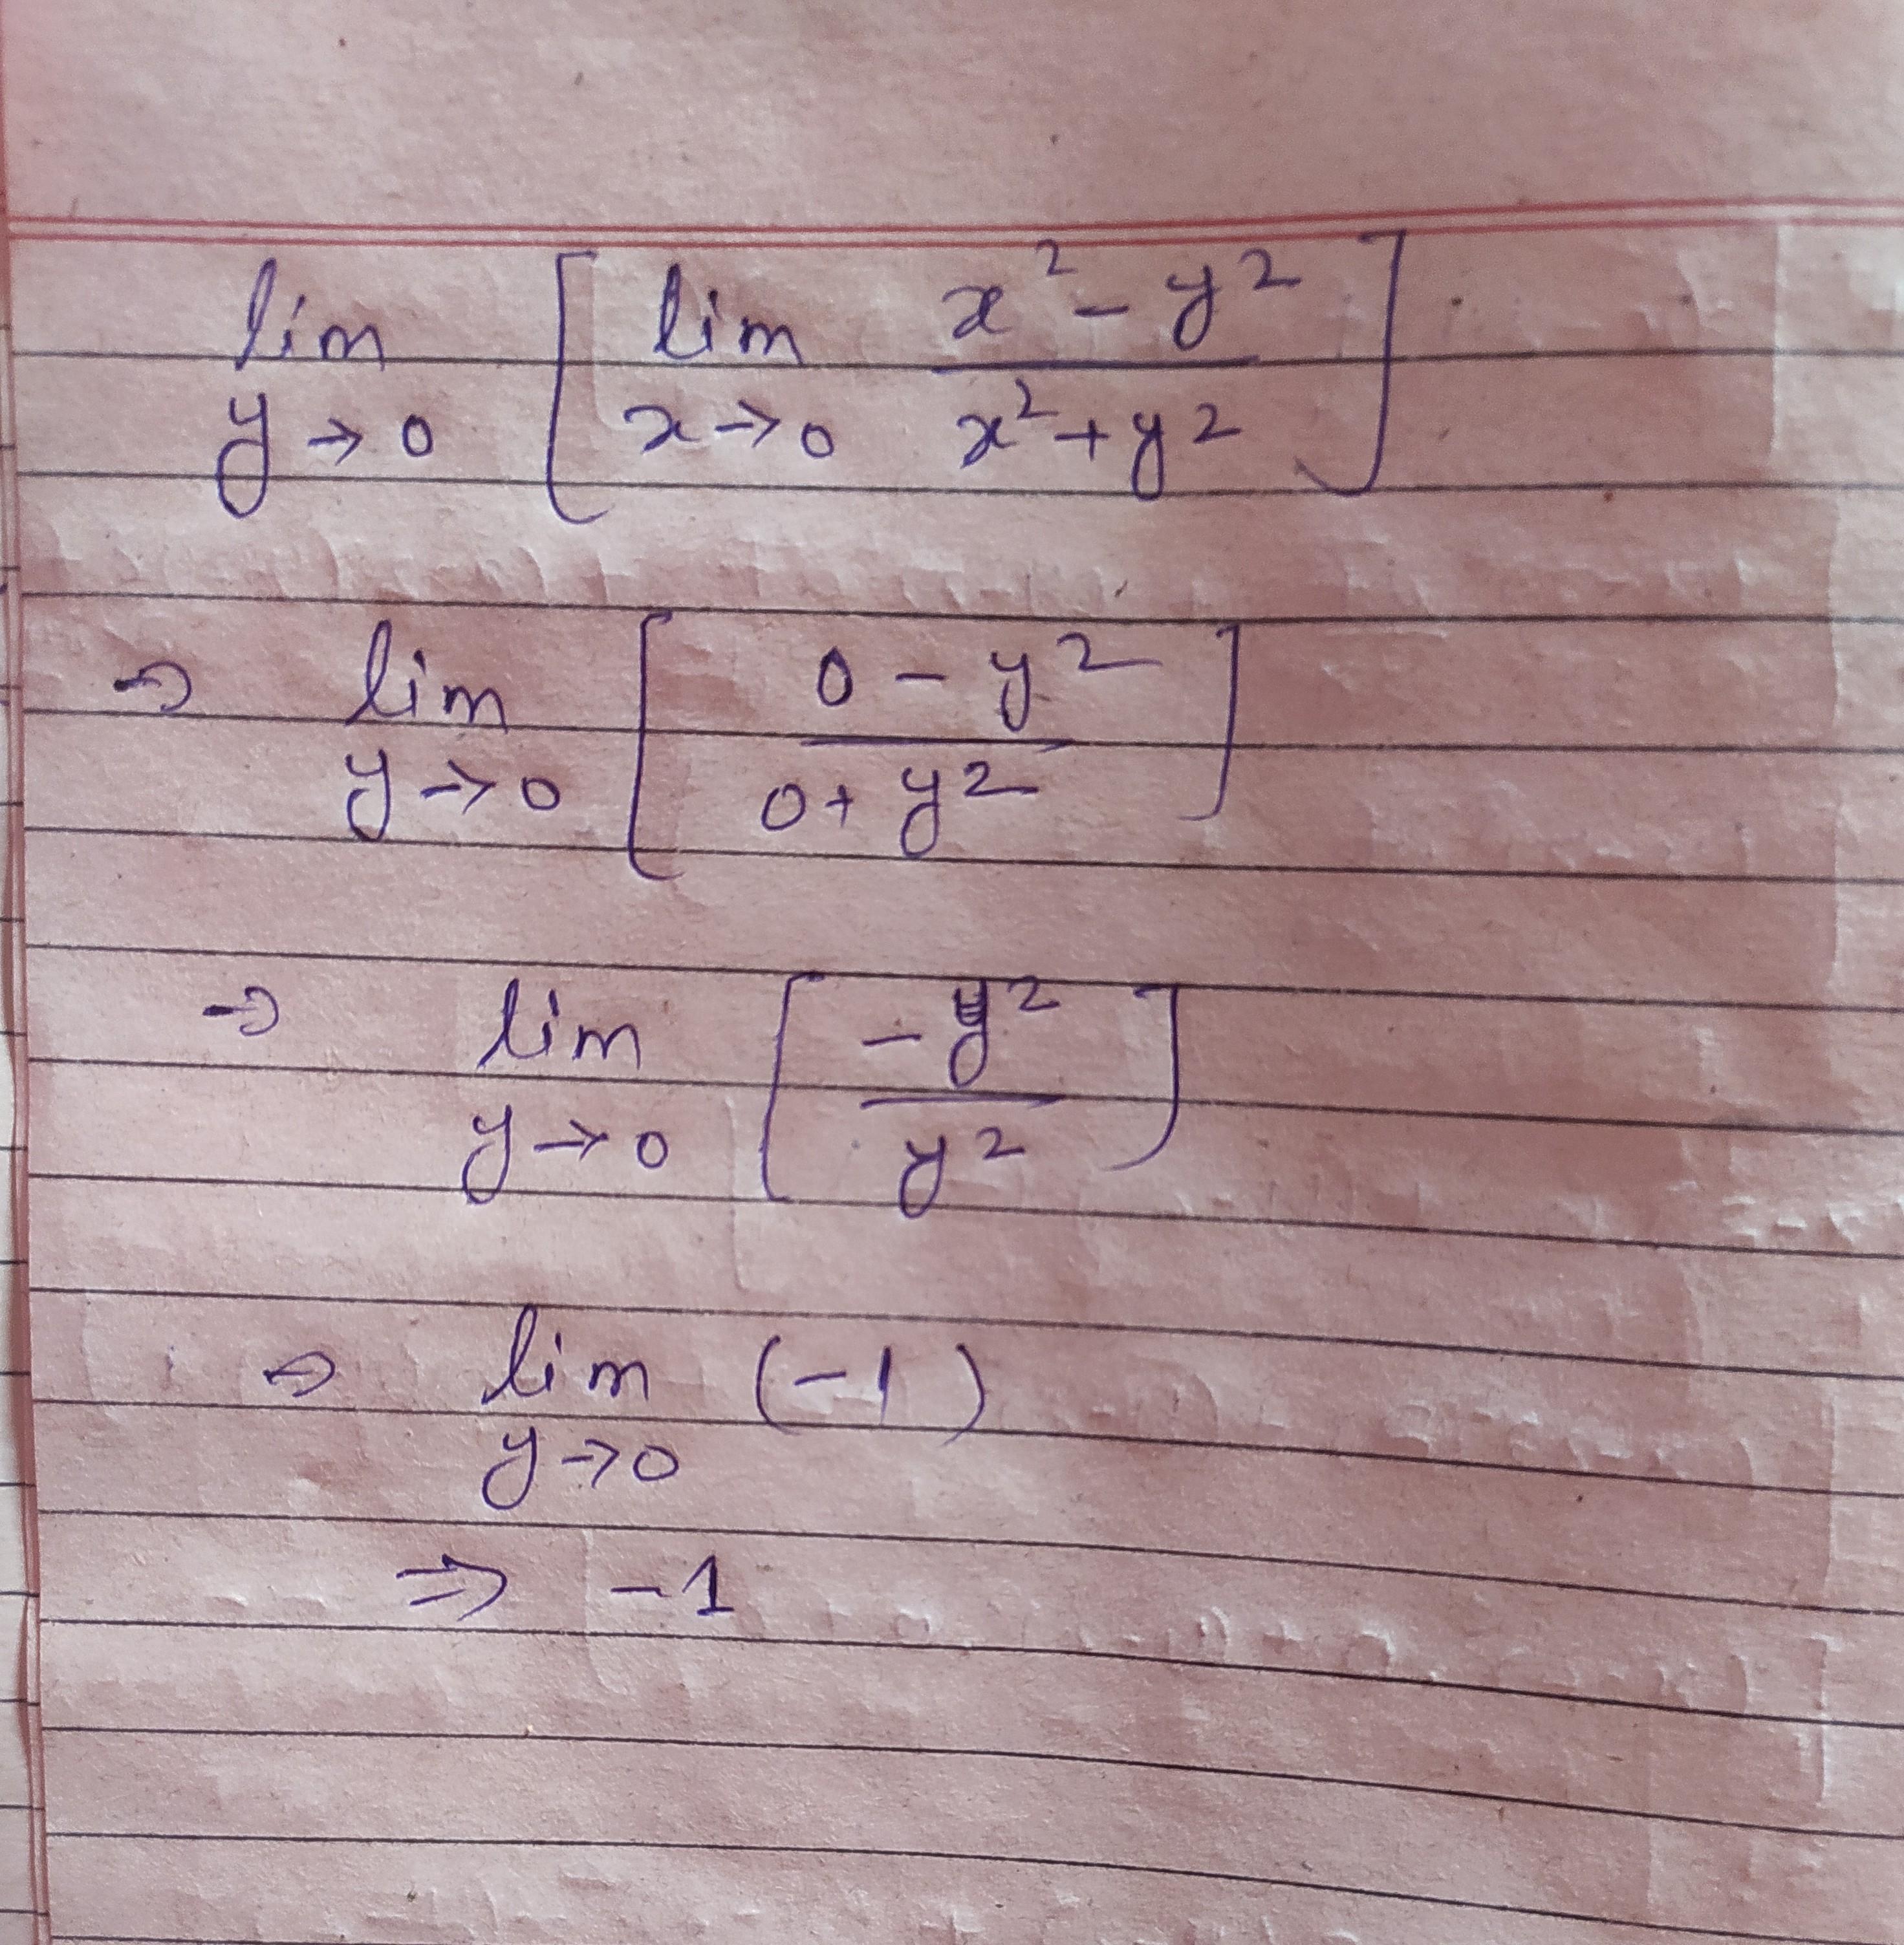 lim y→0 [ lim x→0 (x² - y²)/(x² + y²) ]
⇒ lim y→0 [ (0 - y²)/(0 + y²) ]
⇒ lim y→0 [ -y²/y² ]
⇒ lim y→0 (-1)
⇒ -1